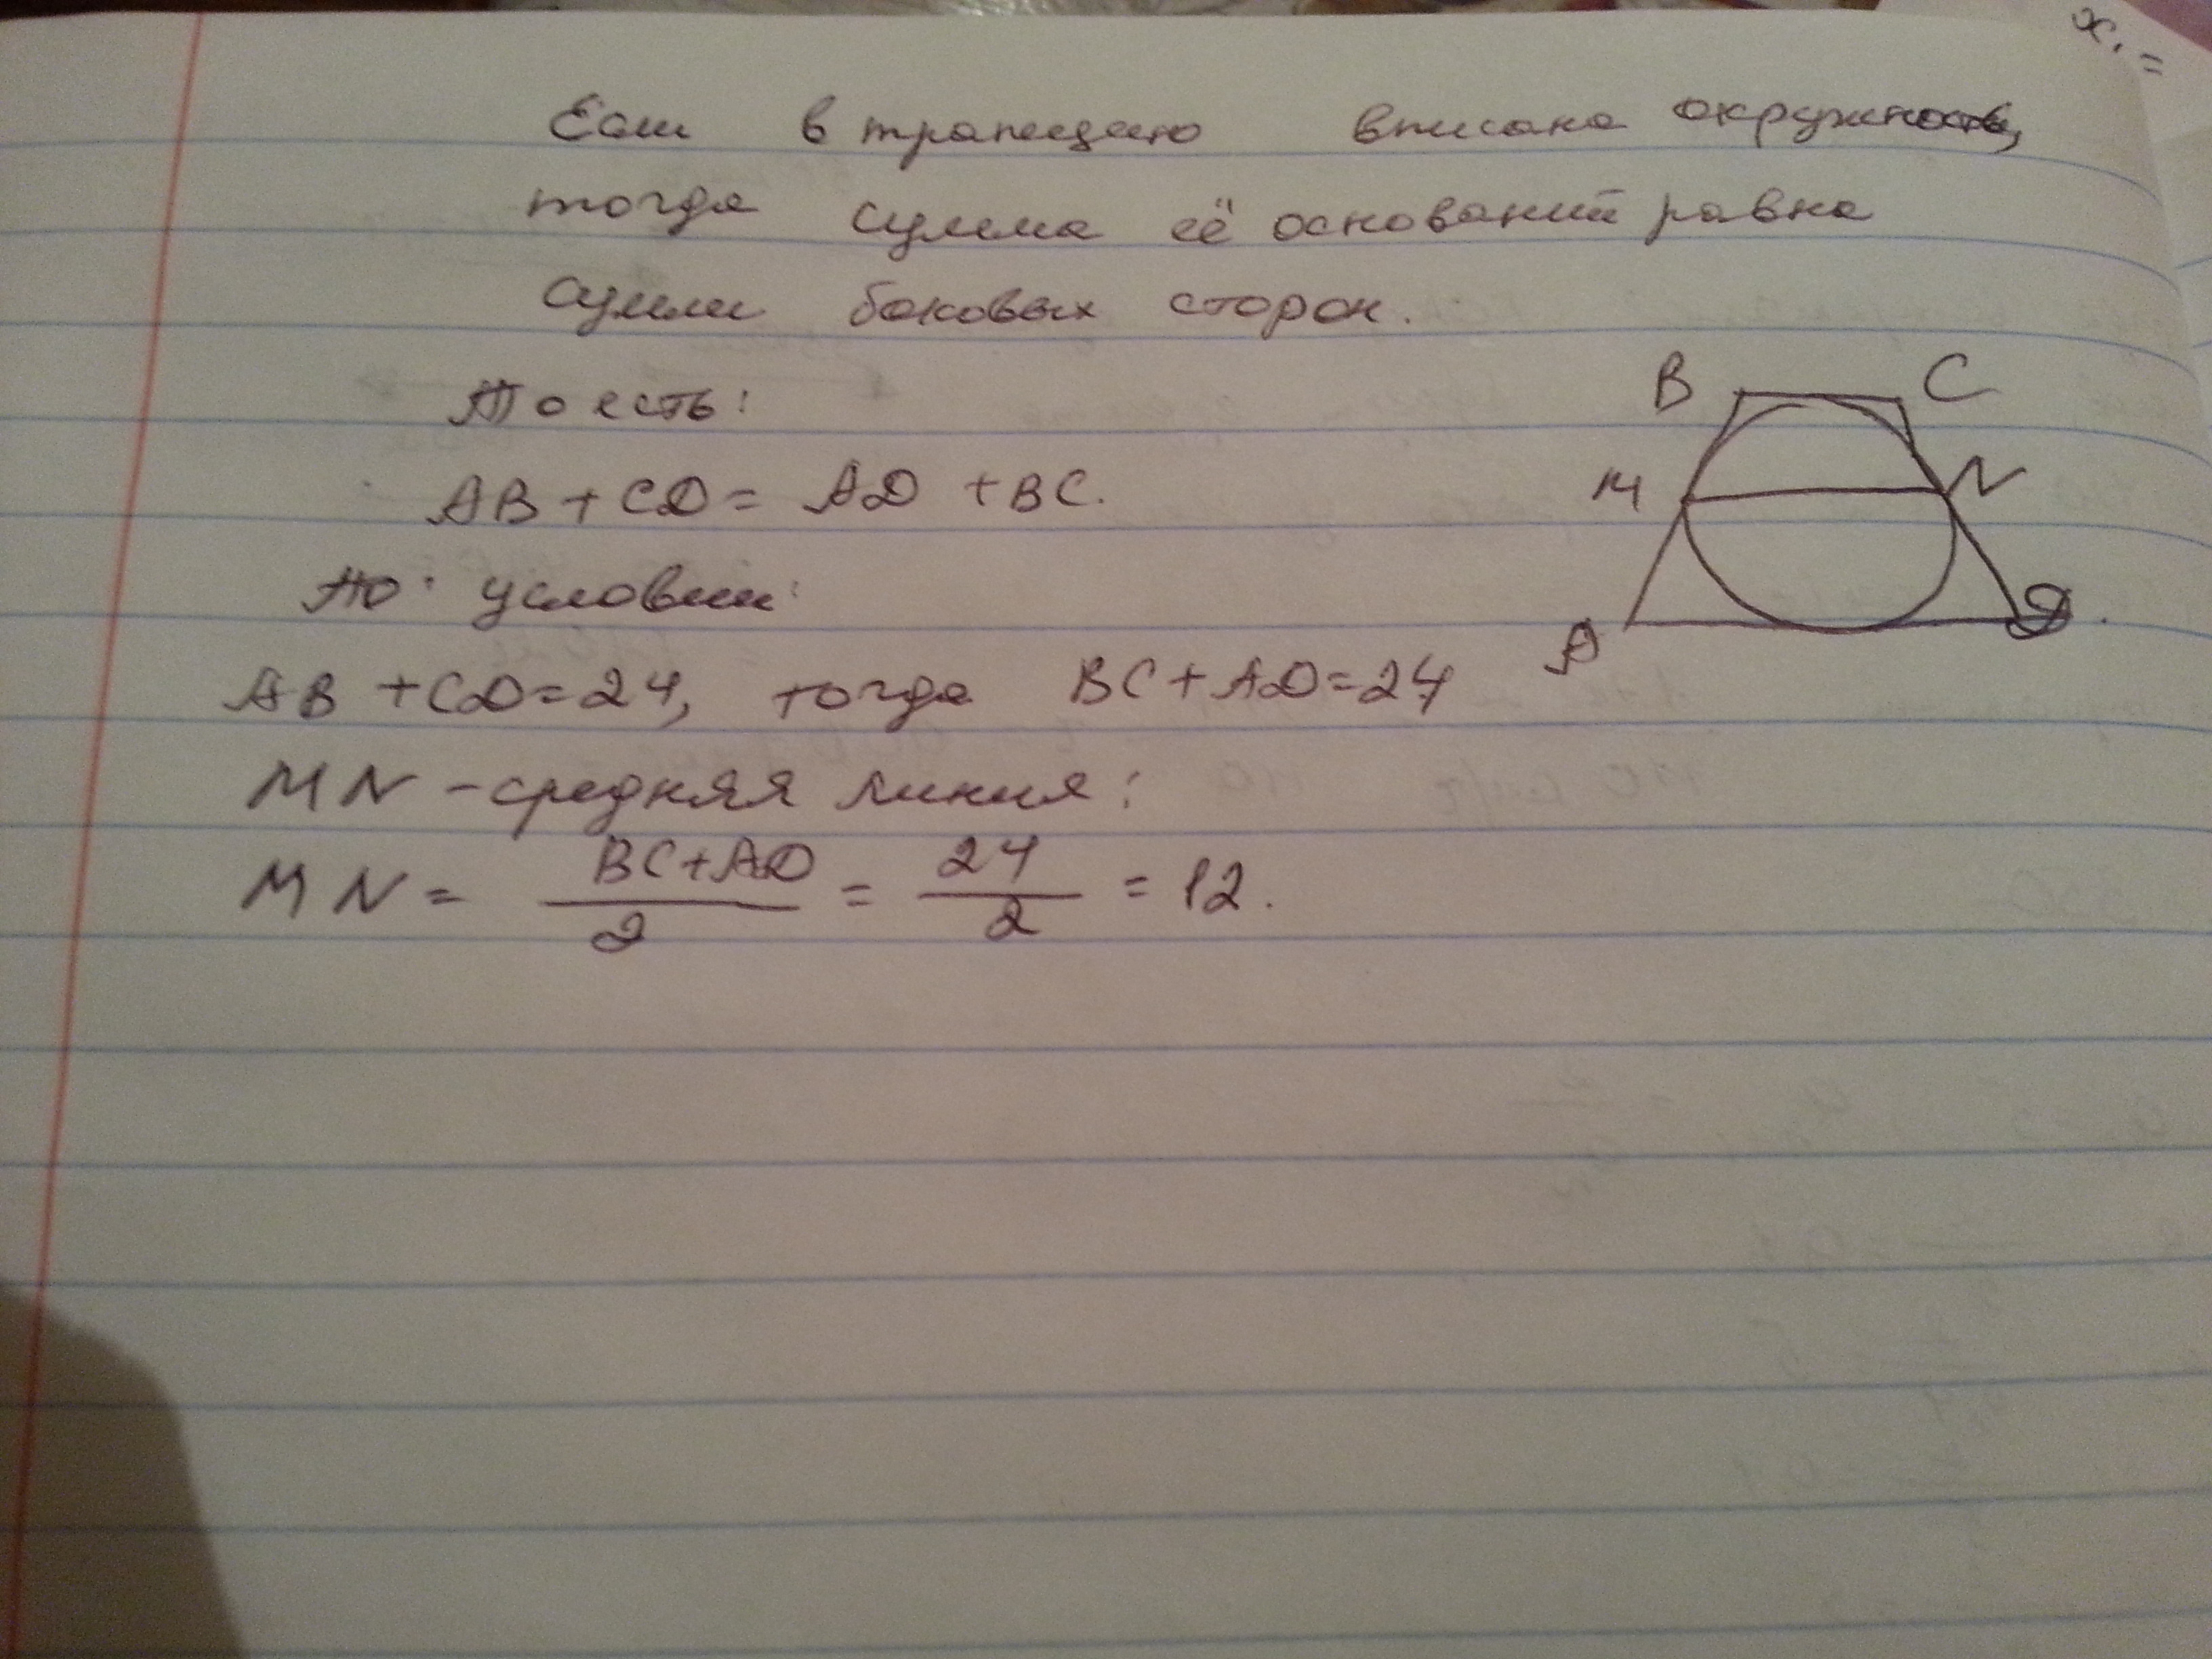 x. =
Если в трапецию вписана окружность,
тогда сумма её оснований равна
сумме боковых сторон.
То есть:
AB + CD = AD + BC.
По условию:
AB + CD = 24, тогда BC + AD = 24
MN - средняя линия:
MN = BC+AD / 2 = 24 / 2 = 12.
B C
M N
A D